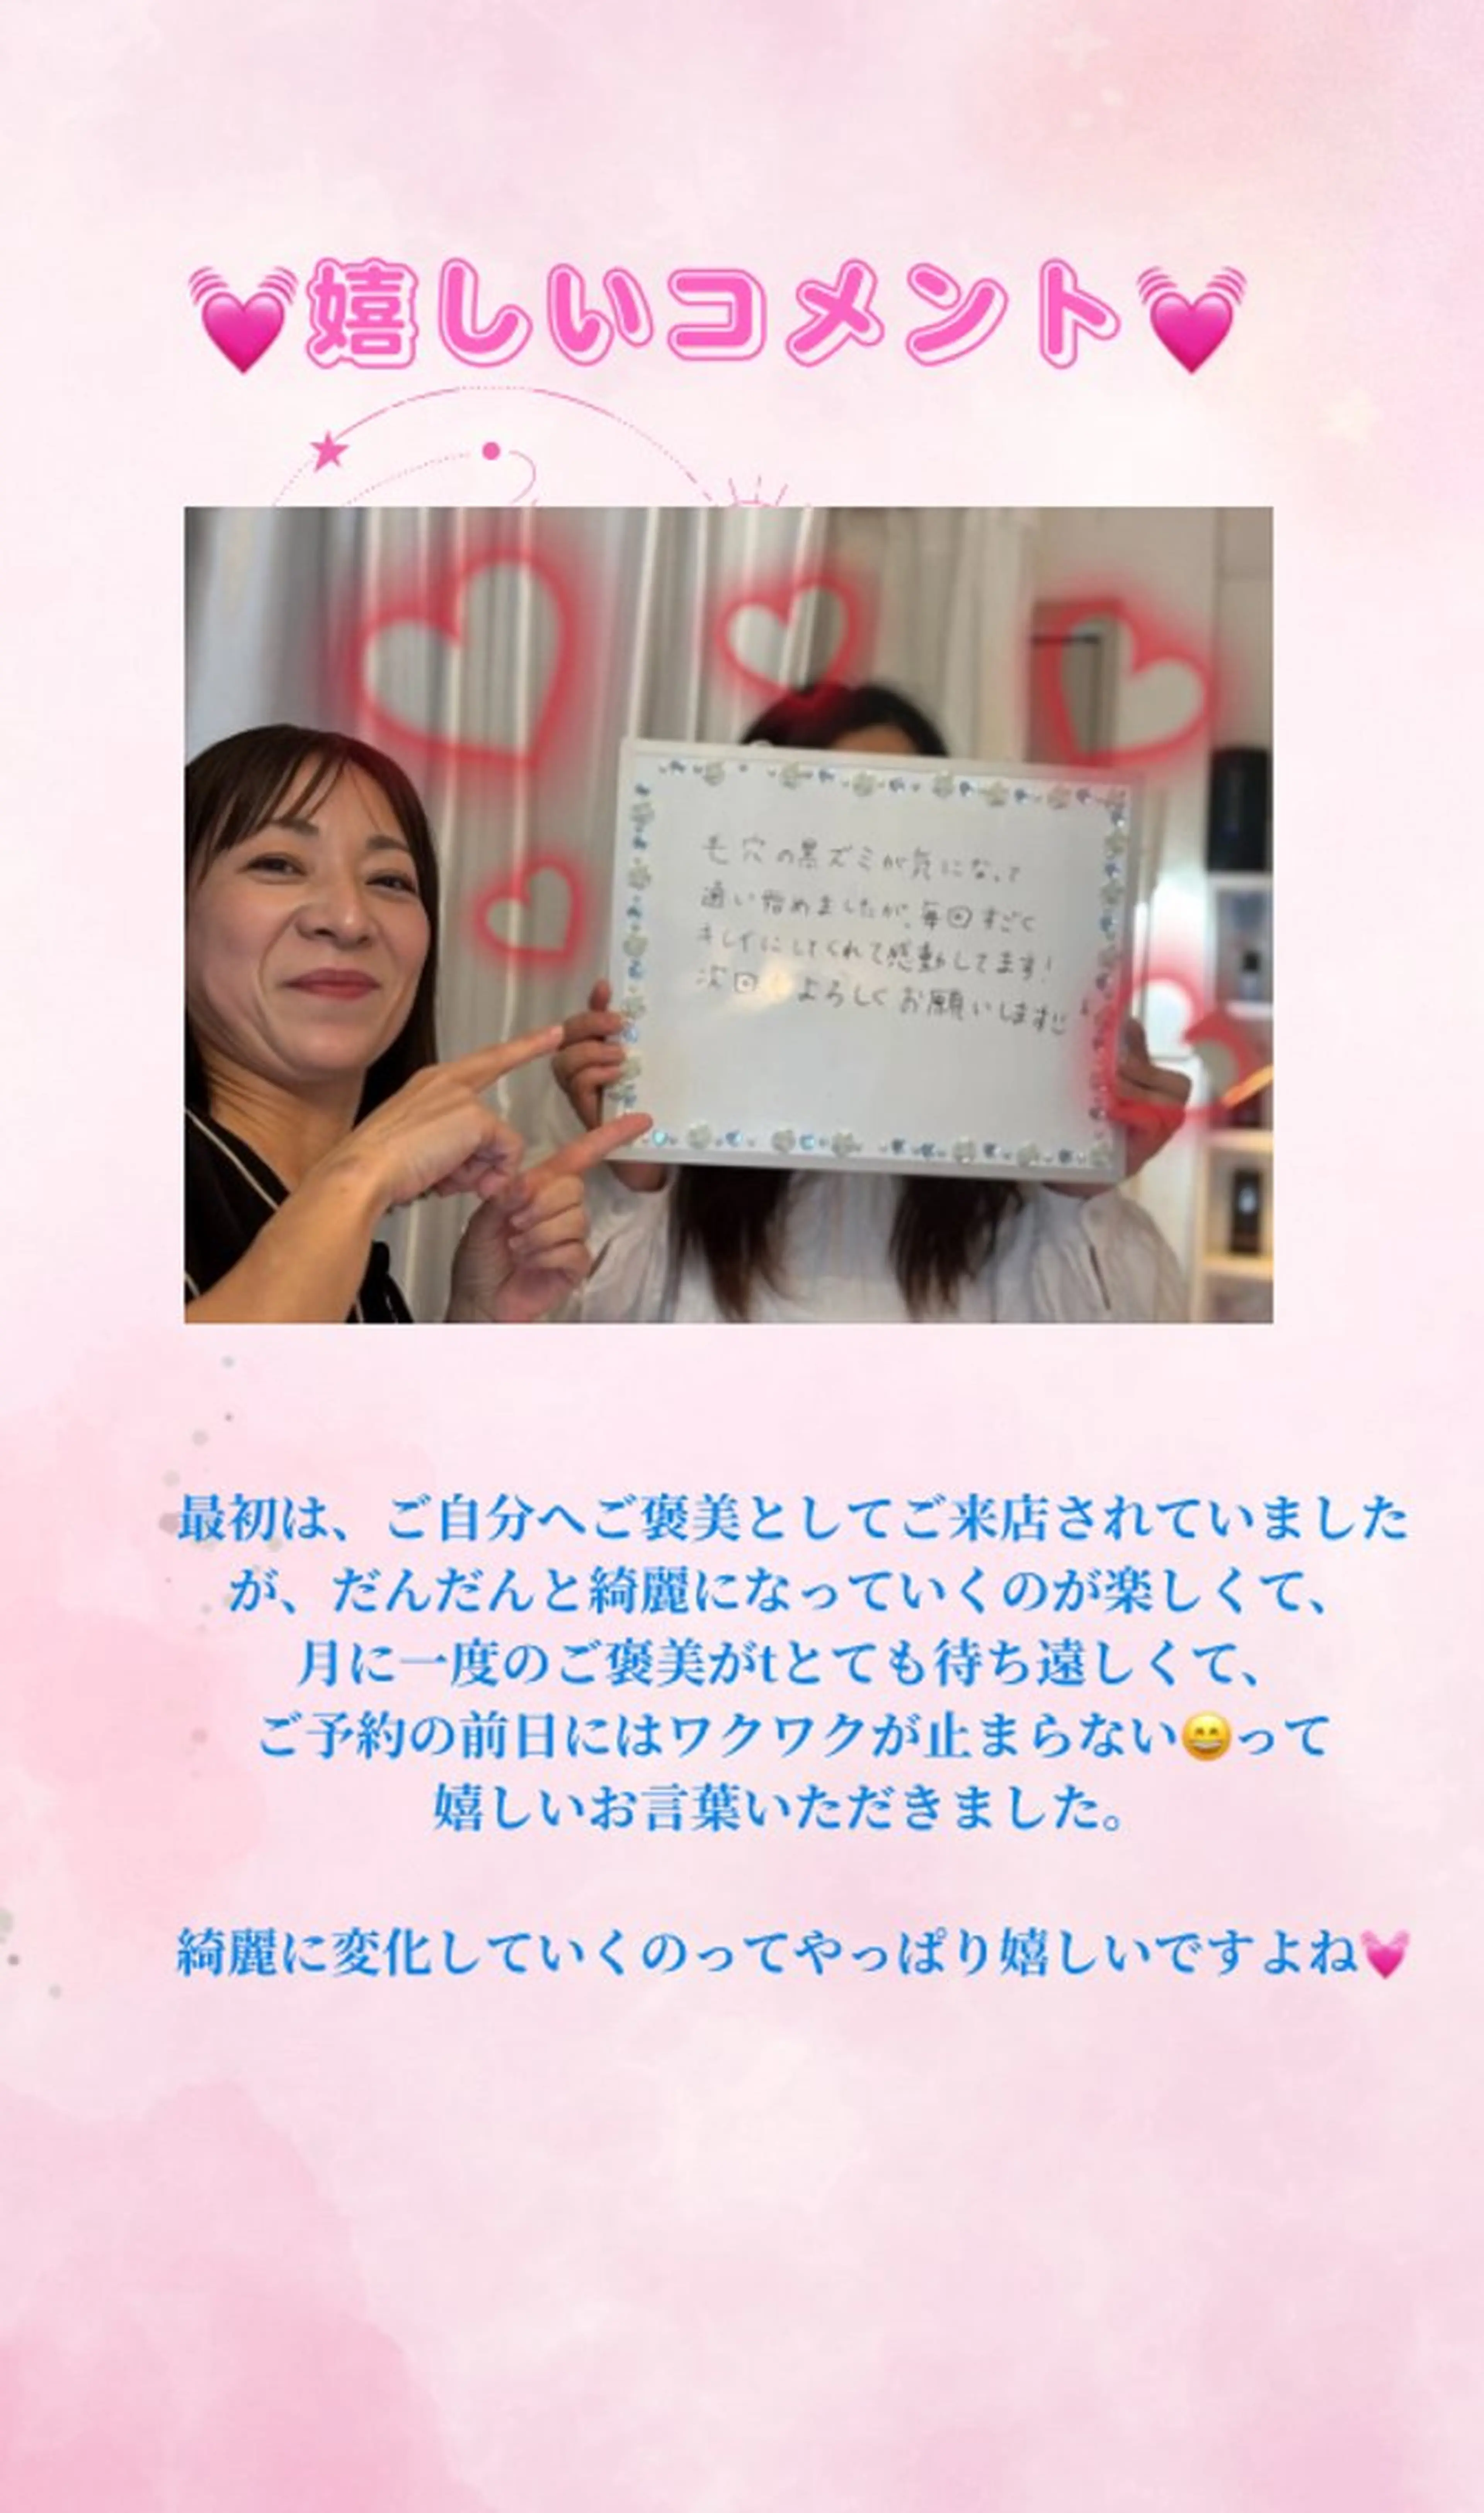 💓嬉しいコメント💓
毛穴の黒ズミが気になって
通い始めましたが、毎回すごく
キレイにしてくれて感動してます!
次回 よろしくお願いします
最初は、ご自分へご褒美としてご来店されていました
が、だんだんと綺麗になっていくのが楽しくて、
月に一度のご褒美がtとても待ち遠しくて、
ご予約の前日にはワクワクが止まらない😄って
嬉しいお言葉いただきました。
綺麗に変化していくのってやっぱり嬉しいですよね💓